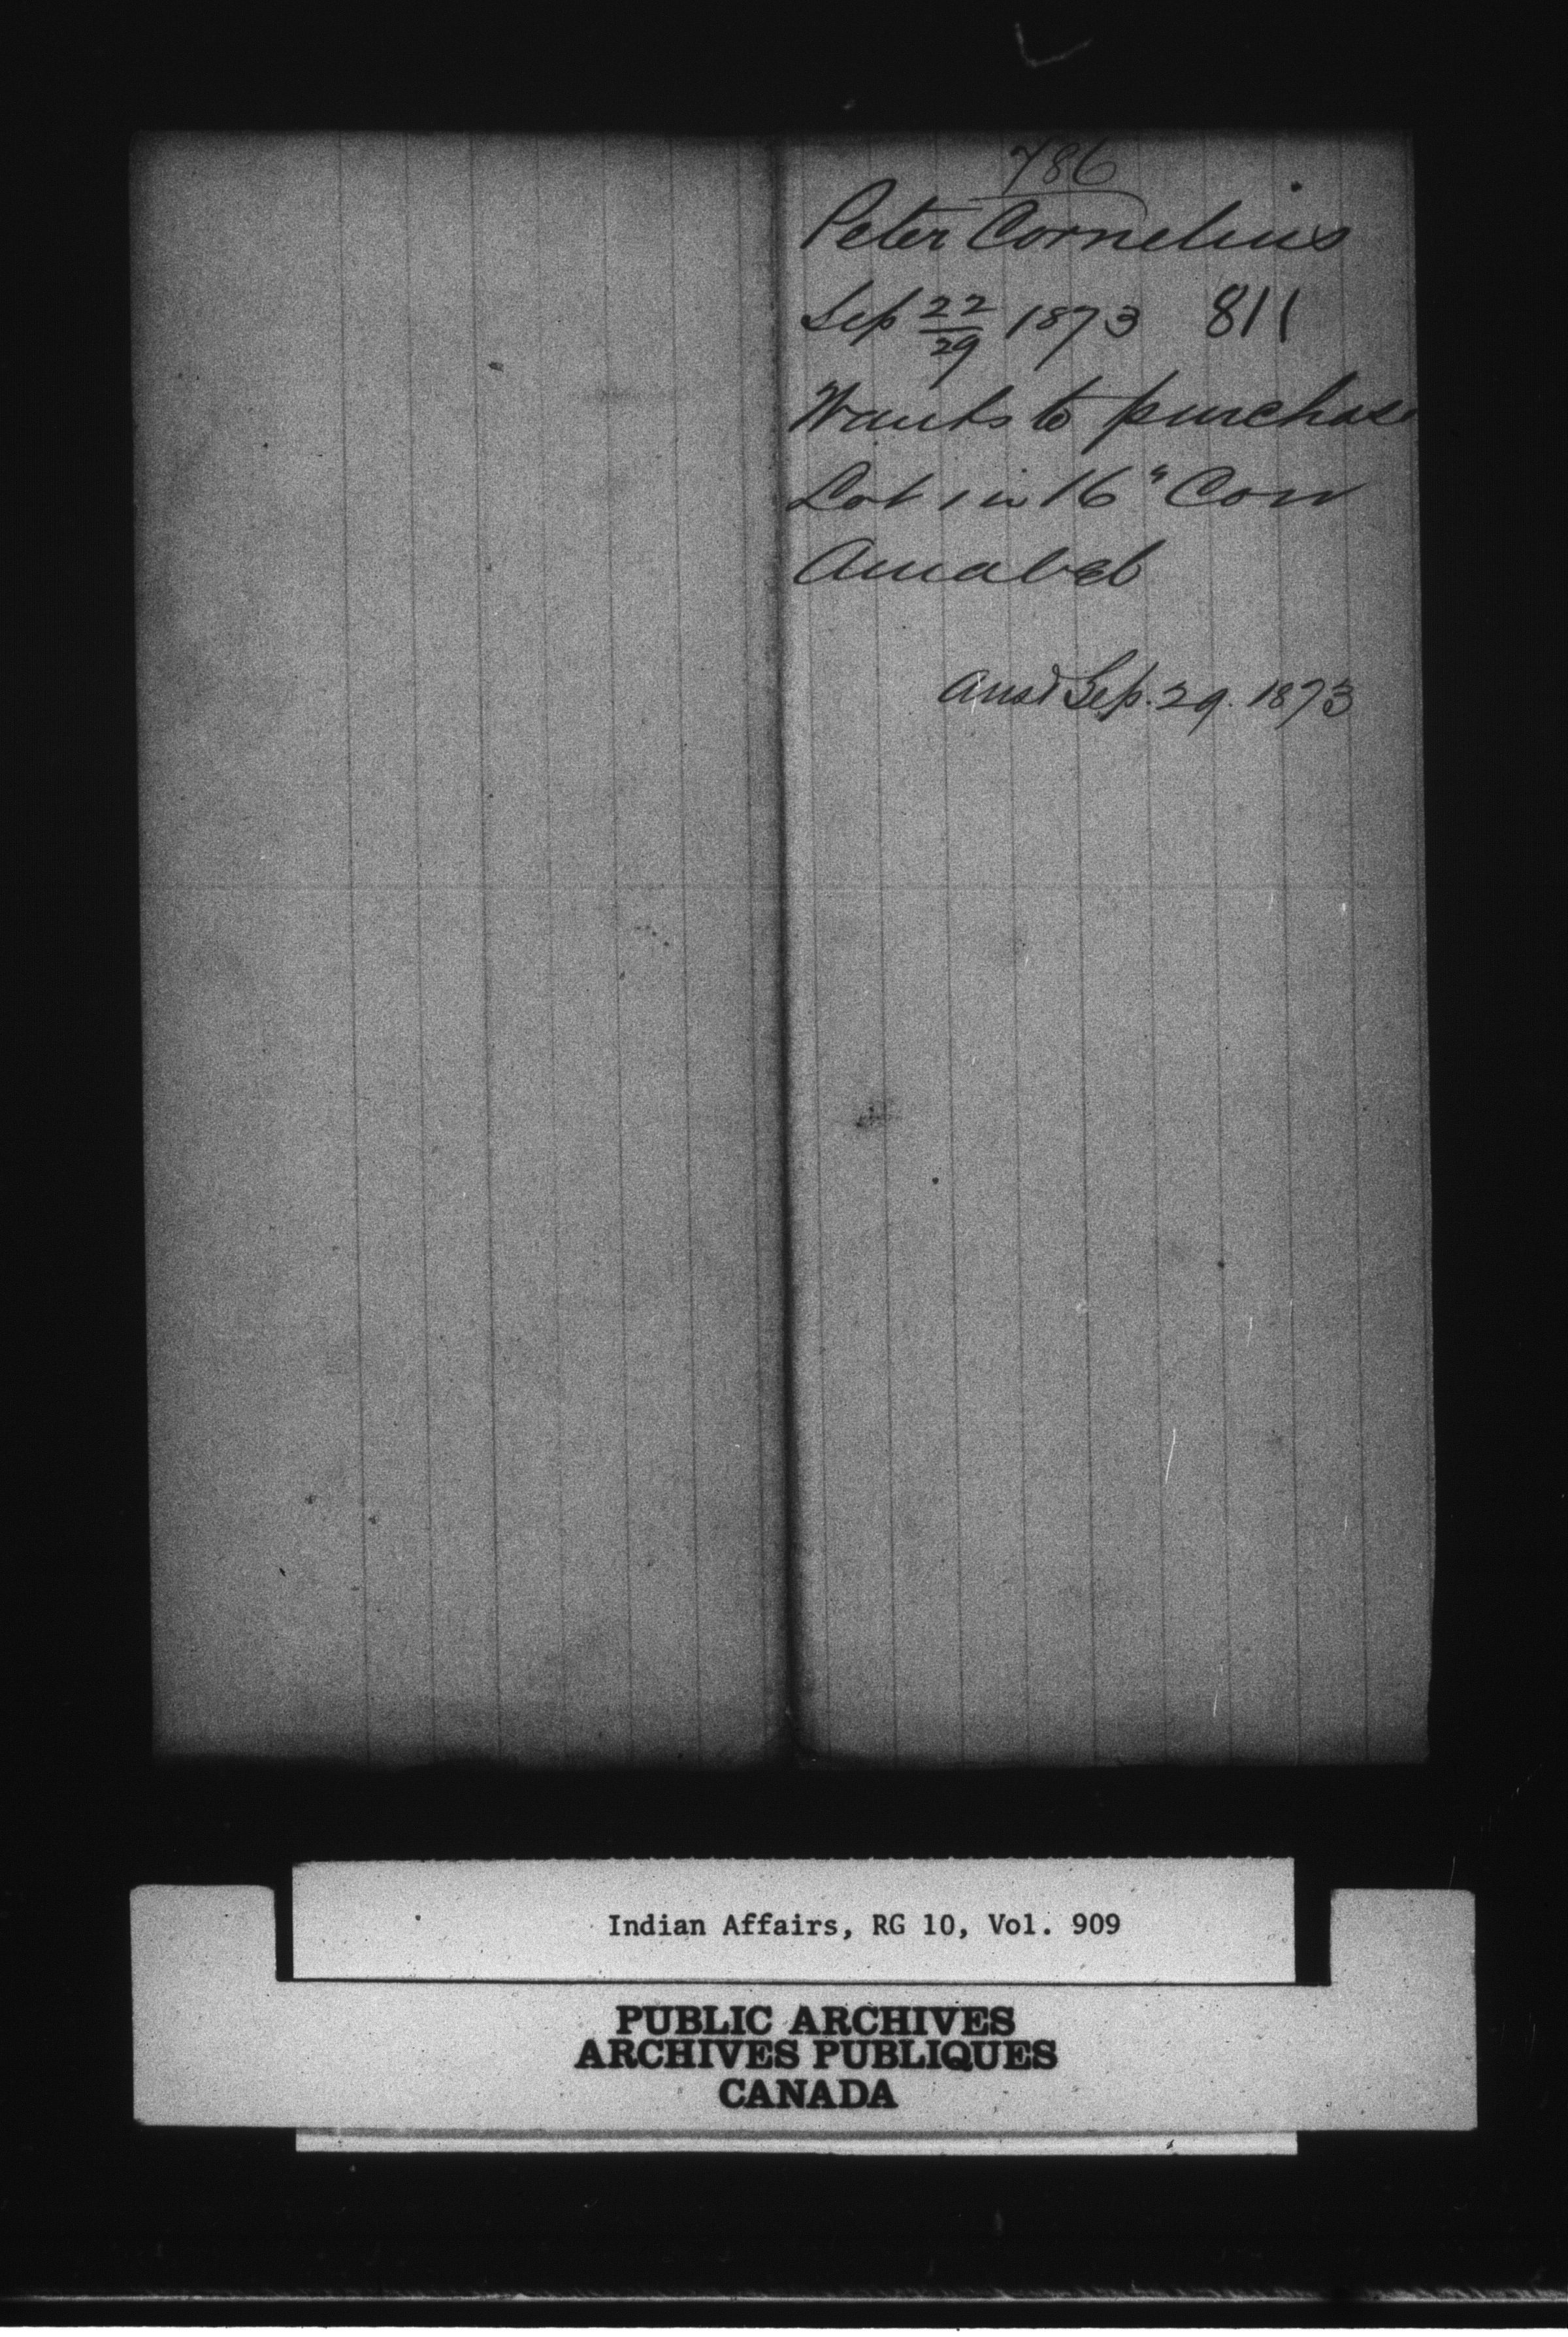 786
Peter Cornelius
Sep 22/29 1873 811
Wants to purchase
Lot 1 in 16" Con
Amabel
Ansd Sep. 29. 1873
Indian Affairs, RG 10, Vol. 909
PUBLIC ARCHIVES
ARCHIVES PUBLIQUES
CANADA